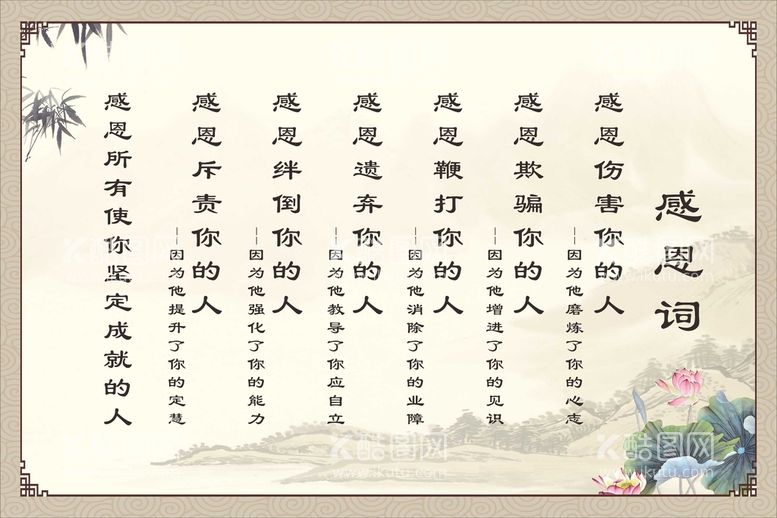 感恩词
感恩伤害你的人
——因为他磨炼了你的心志
感恩欺骗你的人
——因为他增进了你的见识
感恩鞭打你的人
——因为他消除了你的业障
感恩遗弃你的人
——因为他教导了你应自立
感恩绊倒你的人
——因为他强化了你的能力
感恩斥责你的人
——因为他提升了你的定慧
感恩所有使你坚定成就的人
酷图网
www.ikutu.com